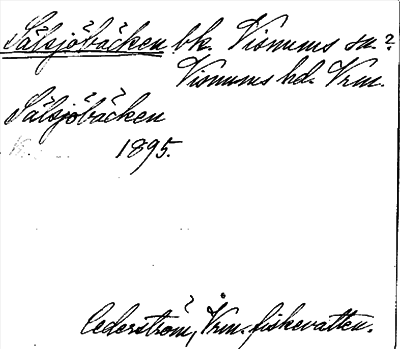 Sälsjöbäcken bk. Visnums sn.?
Visnums hd. Vrm.
Sälsjöbäcken
1895.
Cederström, Vrm. fiskevatten.